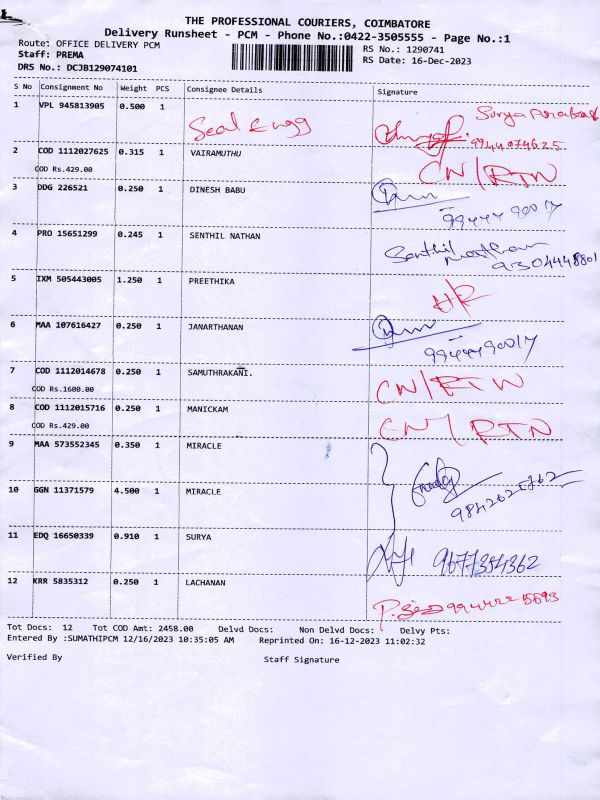 THE PROFESSIONAL COURIERS, COIMBATORE
Delivery Runsheet - PCM - Phone No.:0422-3505555 - Page No.:1
Route: OFFICE DELIVERY PCM RS No.: 1290741
Staff: PREMA RS Date: 16-Dec-2023
DRS No.: DCJB129074101
S No Consignment No Weight PCS Consignee Details Signature
1 VPL 945813905 0.500 1 Seal Engg Surya
9944074625
2 COD 1112027625 0.315 1 VAIRAMUTHU CN/RTN
COD Rs.429.00
3 DDG 226521 0.250 1 DINESH BABU
9944490017
4 PRO 15651299 0.245 1 SENTHIL NATHAN Senthil Nathan
9304448801
5 IXM 505443005 1.250 1 PREETHIKA
6 MAA 107616427 0.250 1 JANARTHANAN
9944490017
7 COD 1112014678 0.250 1 SAMUTHRAKANI. CN/RTN
COD Rs.1600.00
8 COD 1112015716 0.250 1 MANICKAM CN/RTN
COD Rs.429.00
9 MAA 573552345 0.350 1 MIRACLE
10 GGN 11371579 4.500 1 MIRACLE
11 EDQ 16650339 0.910 1 SURYA 9677354362
12 KRR 5835312 0.250 1 LACHANAN
Tot Docs: 12 Tot COD Amt: 2458.00 Delvd Docs: Non Delvd Docs: Delvy Pts:
Entered By :SUMATHIPCM 12/16/2023 10:35:05 AM Reprinted On: 16-12-2023 11:02:32
Verified By Staff Signature